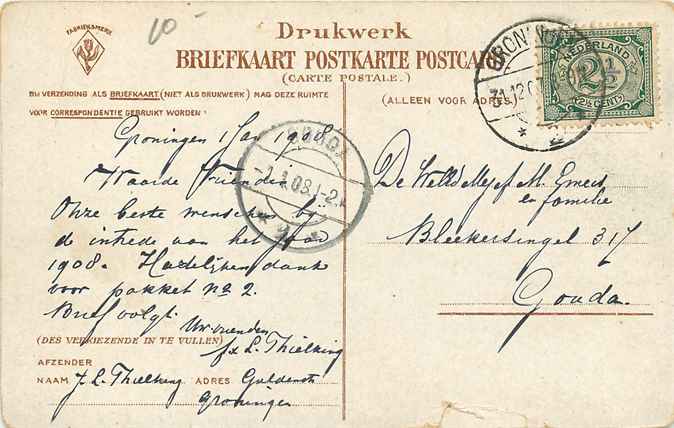 10-
FABRIEKSMERK
Drukwerk
BRIEFKAART POSTKARTE POSTCA
(CARTE POSTALE.)
BIJ VERZENDING ALS BRIEFKAART (NIET ALS DRUKWERK) MAG DEZE RUIMTE
VOOR CORRESPONDENTIE GEBRUIKT WORDEN.
(ALLEEN VOOR ADRES)
GRON
31.12.0
NEDERLAND
2½
2½ CENT
GOUDA
-1.1.08.1-2
Groningen 1 Jan 1908
Waarde Vrienden
Onze beste wenschen bij
d intrede van het Jaar
1908. Hartelijken dank
voor pakket no 2.
Brief volgt.
Uw vrienden
J. L. Thielking
De WelEd
M.
en familie
Bleekersingel 317
Gouda.
(DES VERKIEZENDE IN TE VULLEN)
AFZENDER
NAAM J. L. Thielking ADRES
Groningen